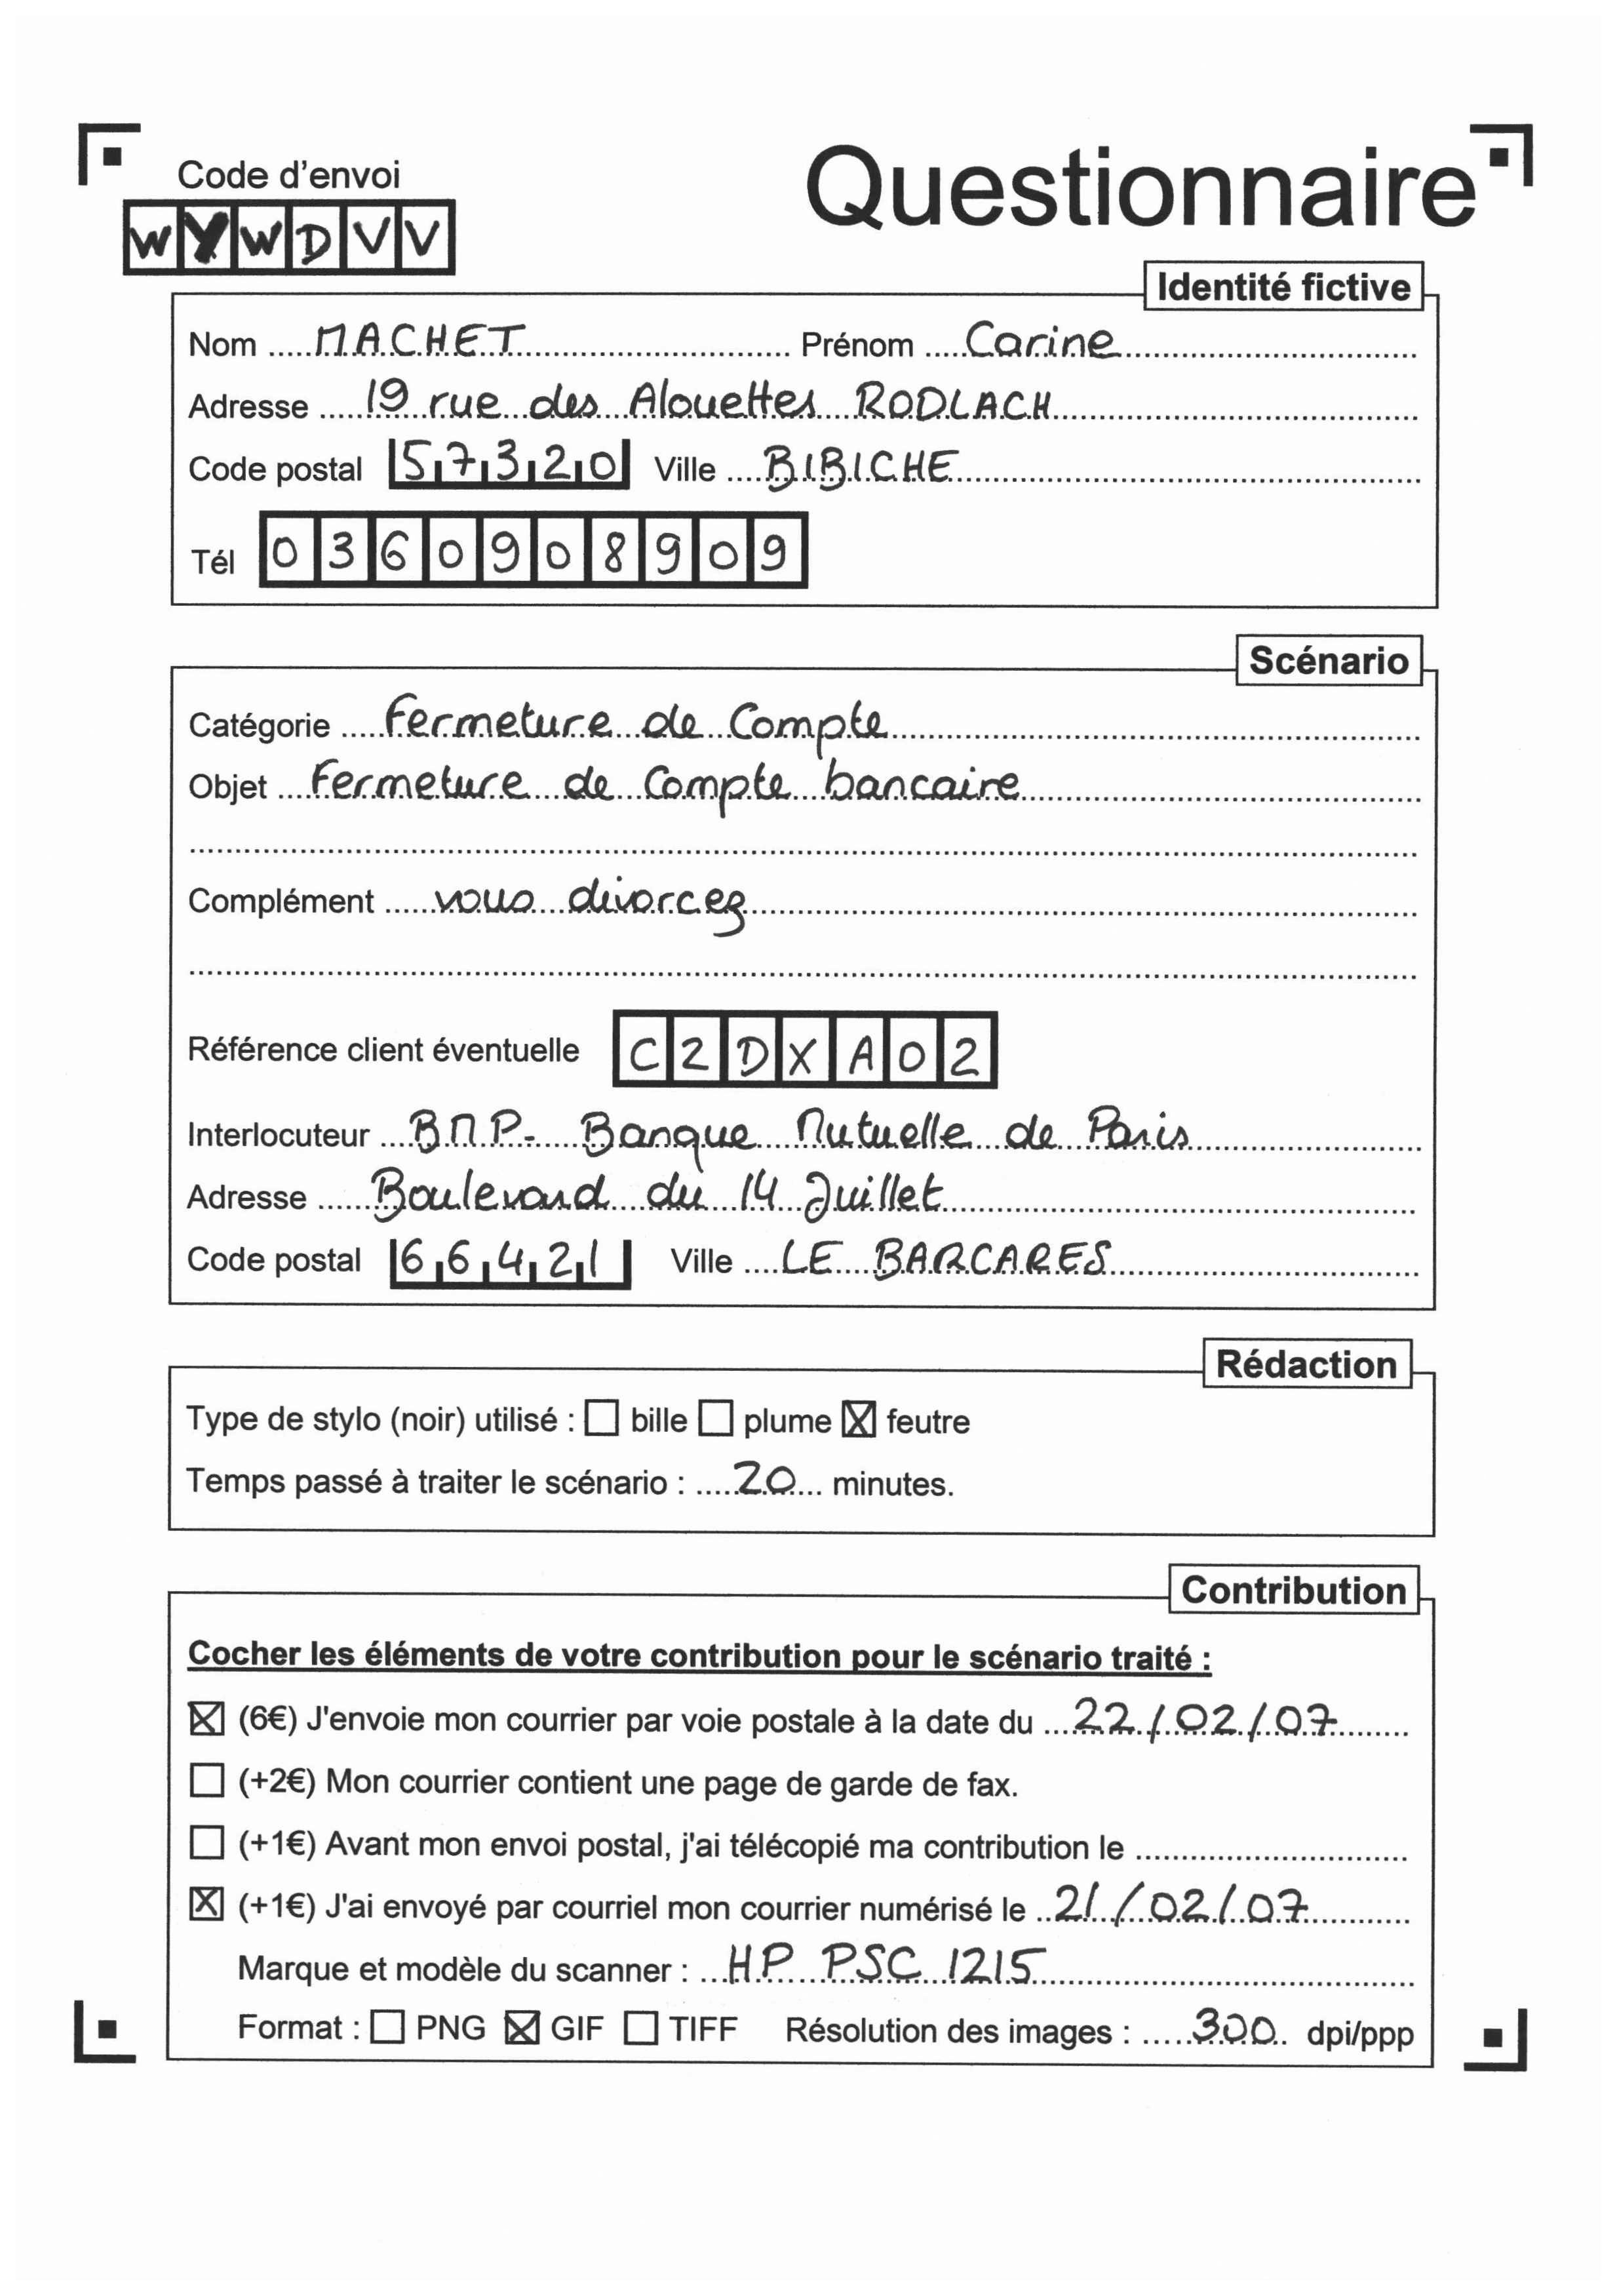 Code d'envoi
Questionnaire
WYWDVV
Identité fictive
Nom ..... MACHET ..... Prénom ..... Carine .....
Adresse ..... 19 rue des Alouettes RODLACH .....
Code postal 57320 Ville .... BIBICHE .....
Tél 0360908909
Scénario
Catégorie ..... Fermeture de Compte .....
Objet .... Fermeture de Compte bancaire .....
Complément ...... vous divorcez .....
Référence client éventuelle C2DXA02
Interlocuteur .... BMP- Banque Mutuelle de Paris .....
Adresse ...... Boulevard du 14 Juillet .....
Code postal 66421 Ville .... LE BARCARES .....
Rédaction
Type de stylo (noir) utilisé : ☐ bille ☐ plume ☒ feutre
Temps passé à traiter le scénario : ..... 20 ... minutes.
Contribution
Cocher les éléments de votre contribution pour le scénario traité :
☒ (6€) J'envoie mon courrier par voie postale à la date du ... 22/02/07 .....
☐ (+2€) Mon courrier contient une page de garde de fax.
☐ (+1€) Avant mon envoi postal, j'ai télécopié ma contribution le .....
☒ (+1€) J'ai envoyé par courriel mon courrier numérisé le .. 21/02/07 .....
Marque et modèle du scanner : ... HP PSC 1215 .....
Format : ☐ PNG ☒ GIF ☐ TIFF Résolution des images : ..... 300 .. dpi/ppp